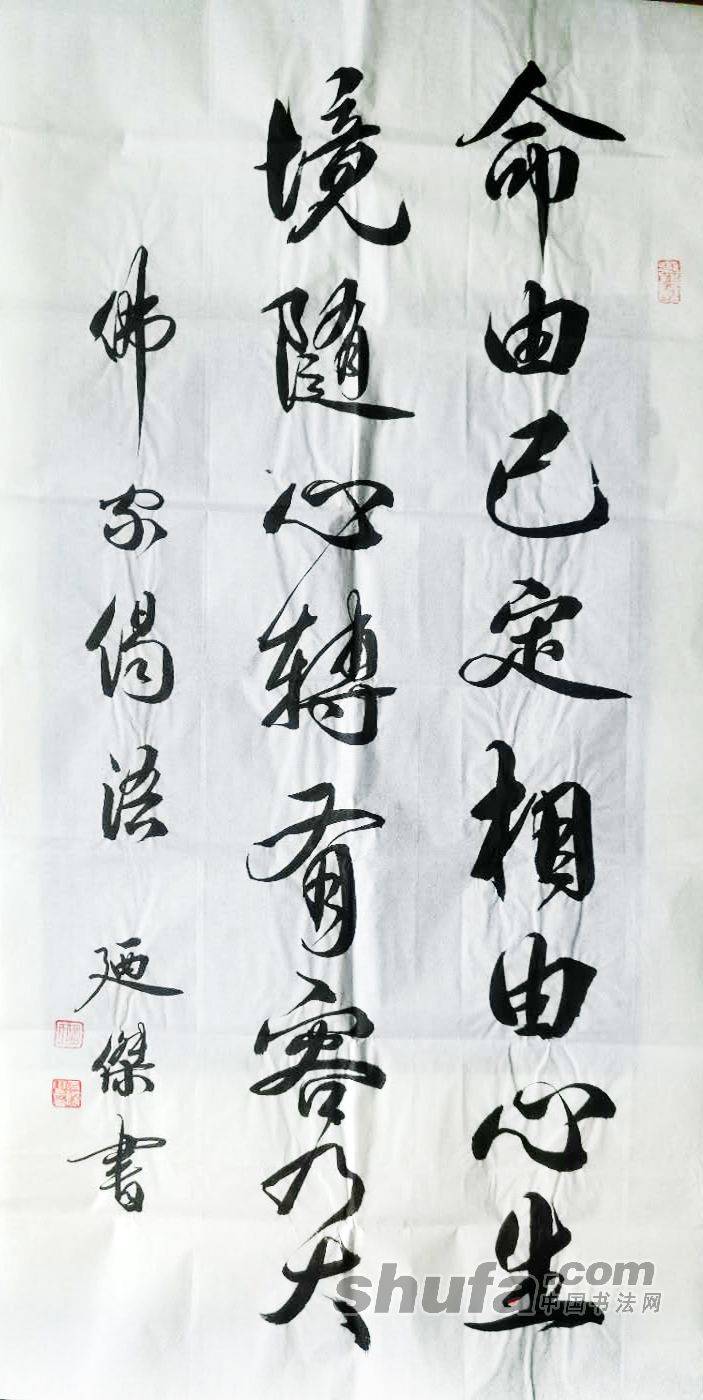 命由己定相由心生
境随心轉有容乃大
佛家偈语 廼傑書
shufa.com
中国书法网